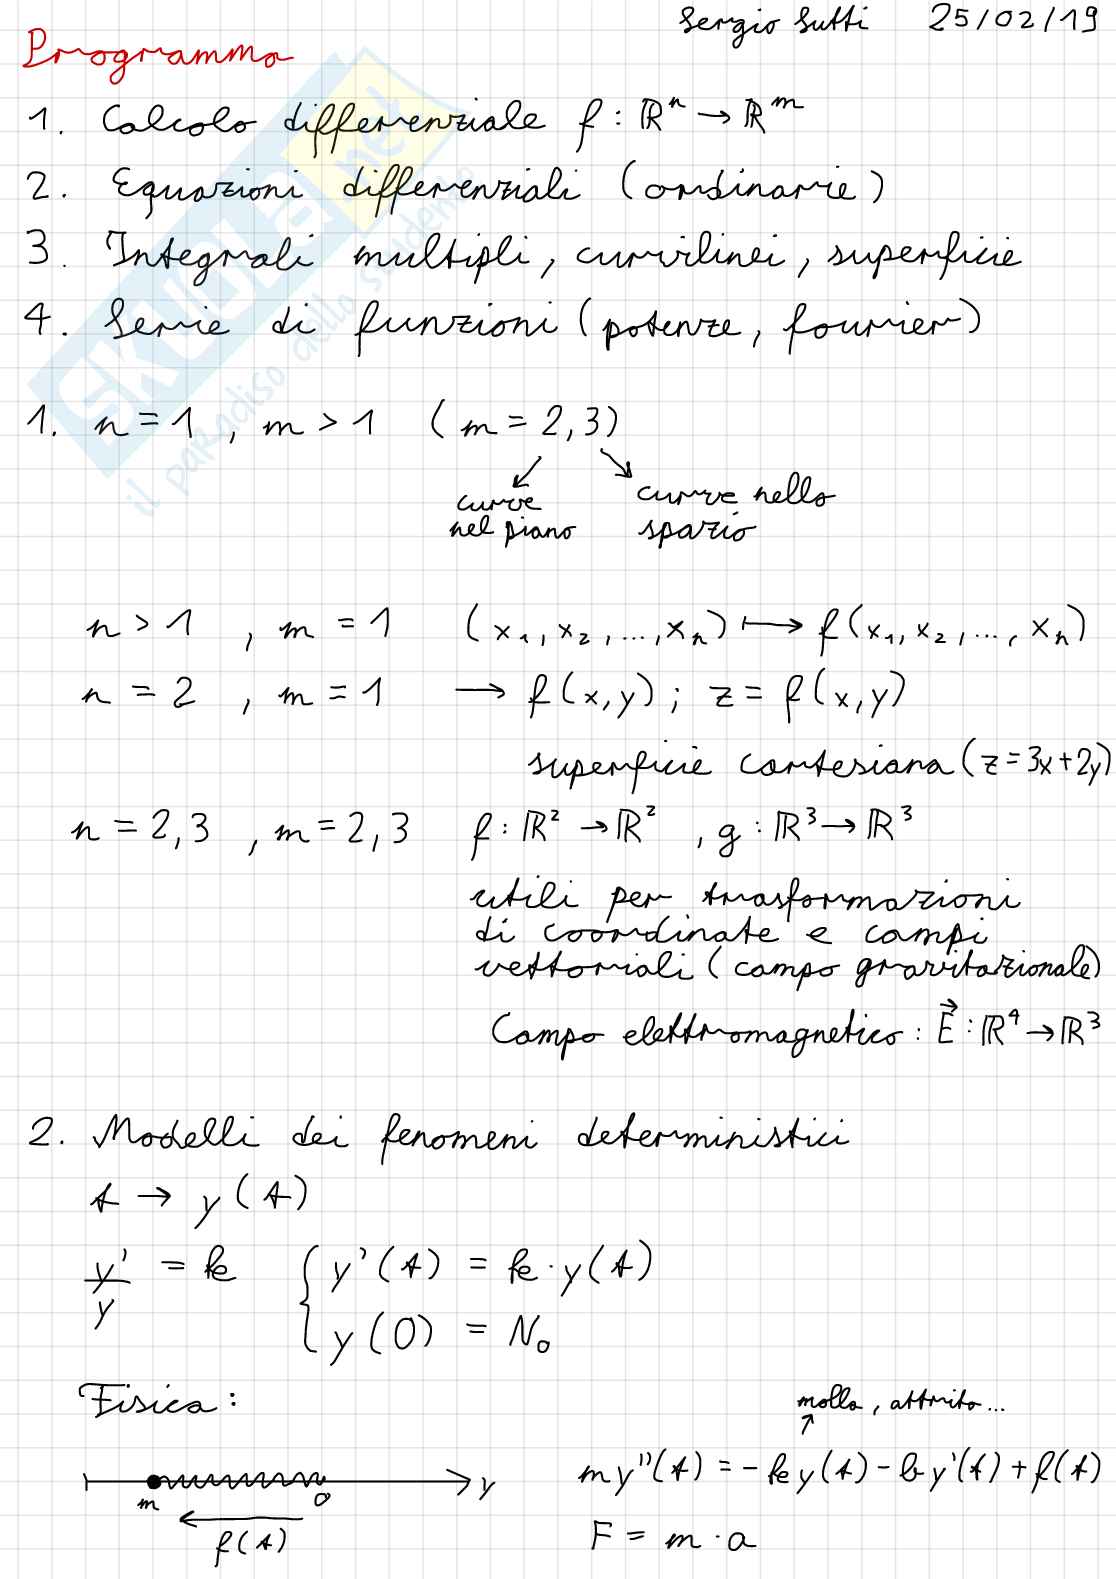 Sergio Sutti 25/02/19
Programma
1. Calcolo differenziale f : ℝⁿ → ℝᵐ
2. Equazioni differenziali (ordinarie)
3. Integrali multipli, curvilinei, superficie
4. Serie di funzioni (potenze, fourier)
SKUOLA.net
il paradiso dello studente
1. n = 1 , m > 1 (m = 2, 3)
curve nel piano
curve nello spazio
n > 1 , m = 1 (x₁, x₂, ..., xₙ) ⟼ f(x₁, x₂, ..., xₙ)
n = 2 , m = 1 → f(x,y) ; z = f(x,y)
superficie cartesiana (z = 3x + 2y)
n = 2, 3 , m = 2, 3 f : ℝ² → ℝ² , g : ℝ³ → ℝ³
utili per trasformazioni
di coordinate e campi
vettoriali (campo gravitazionale)
Campo elettromagnetico : E⃗ : ℝ⁴ → ℝ³
2. Modelli dei fenomeni deterministici
t → y(t)
y'/y = k { y'(t) = k · y(t)
y(0) = N₀
Fisica :
molla, attrito...
m y''(t) = - k y(t) - b y'(t) + f(t)
m 0 y
f(t)
F = m · a